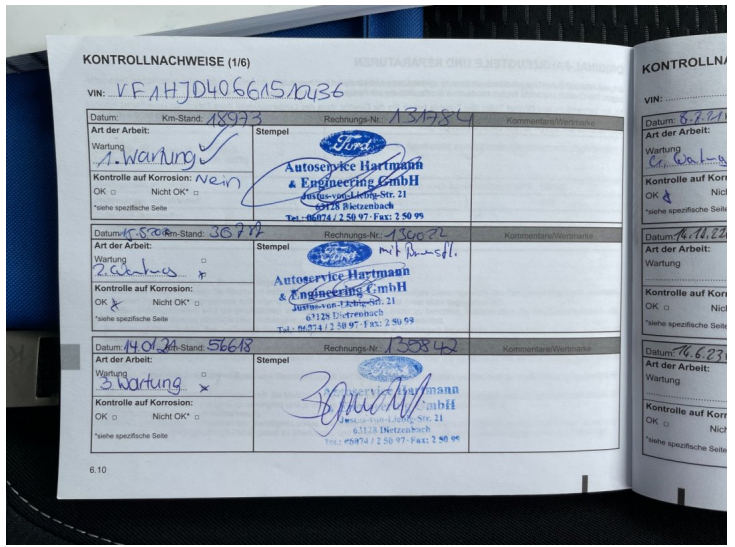 KONTROLLNACHWEISE (1/6)
VIN: VF1HJD40661510436
Datum: Km-Stand: 18973 Rechnungs-Nr.: 131784 Kommentare/Wertmarke
Art der Arbeit: Stempel
Wartung
1. Wartung
Kontrolle auf Korrosion: Nein
OK Nicht OK*
*siehe spezifische Seite
Ford
Autoservice Hartmann
& Engineering GmbH
Justus-von-Liebig-Str. 21
63128 Dietzenbach
Tel.: 06074 / 2 50 97 · Fax: 2 50 99
Datum: Km-Stand: Rechnungs-Nr.: Kommentare/Wertmarke
Art der Arbeit: Stempel mit
Wartung
2. Wartung
Kontrolle auf Korrosion:
OK Nicht OK*
*siehe spezifische Seite
Ford
Autoservice Hartmann
& Engineering GmbH
Justus-von-Liebig-Str. 21
63128 Dietzenbach
Tel.: 06074 / 2 50 97 · Fax: 2 50 99
Datum: 14.01.21 Km-Stand: 56618 Rechnungs-Nr.: 135842 Kommentare/Wertmarke
Art der Arbeit: Stempel
Wartung
3. Wartung
Kontrolle auf Korrosion:
OK Nicht OK*
*siehe spezifische Seite
Justus-von-Liebig-Str. 21
63128 Dietzenbach
06074 / 2 50 97 · Fax: 2 50 99
6.10
KONTROLLNA
VIN:
Datum:
Art der Arbeit:
Wartung
Kontrolle auf Korr
OK Nich
*siehe spezifische Seite
Datum:
Art der Arbeit:
Wartung
Kontrolle auf Korr
OK Nich
*siehe spezifische Seite
Datum: 14.6.23
Art der Arbeit:
Wartung
Kontrolle auf Korr
OK Nich
*siehe spezifische Seite